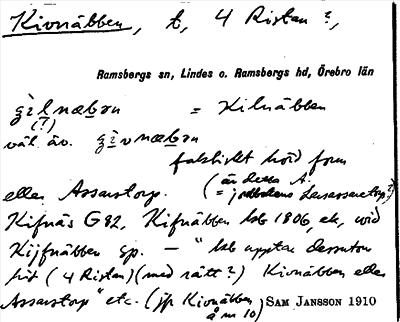 Kivnäbben, t, 4 Ristan?,
Ramsbergs sn, Lindes o. Ramsbergs hd, Örebro län
gìlnæbən = Kilnäbben
(?)
väl äv. gìvnæbən
faktiskt hörd form
eller Assarstorp. (är detta A.
= jordbokens
Kifnäs G82, Kifnäbben 1806, ek, vid
Kijfnäbben gp. — "
hit (4 Ristan) (med rätt?) Kivnäbben eller
Assarstorp" etc. (jfr Kivnäbben
å nr 10) SAM JANSSON 1910